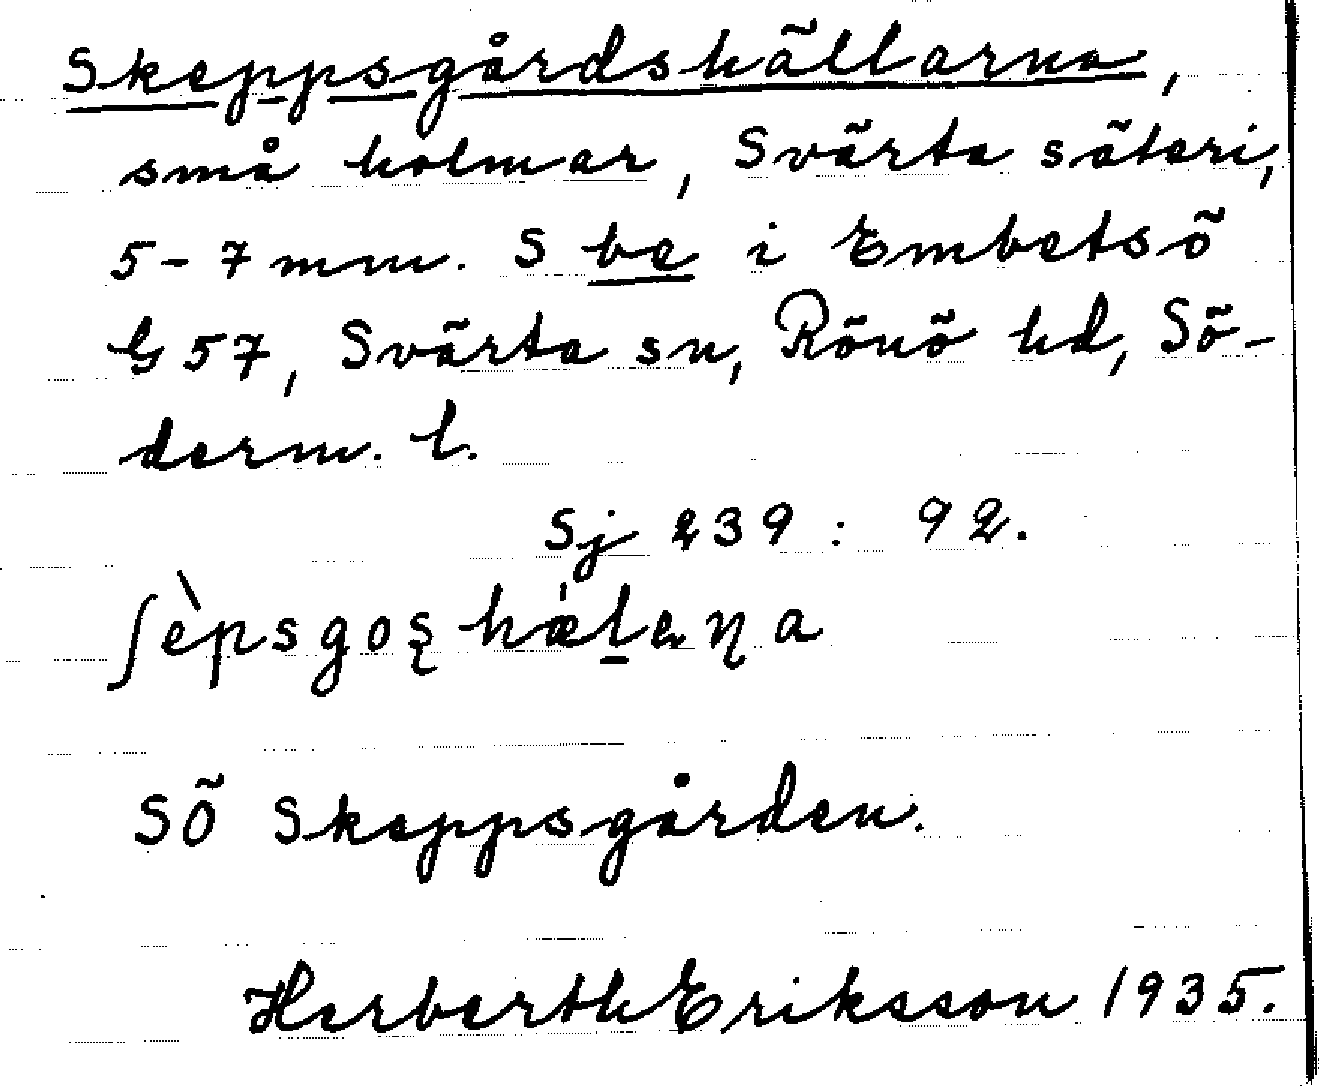 Skeppsgårdshällarna,
små holmar, Svärta säteri,
5-7 mm. S be i Embetsö
G 57, Svärta sn, Rönö hd, Sö-
derm. l.
Sj 239: 92.
SÖ Skeppsgården.
Herberth Eriksson 1935.